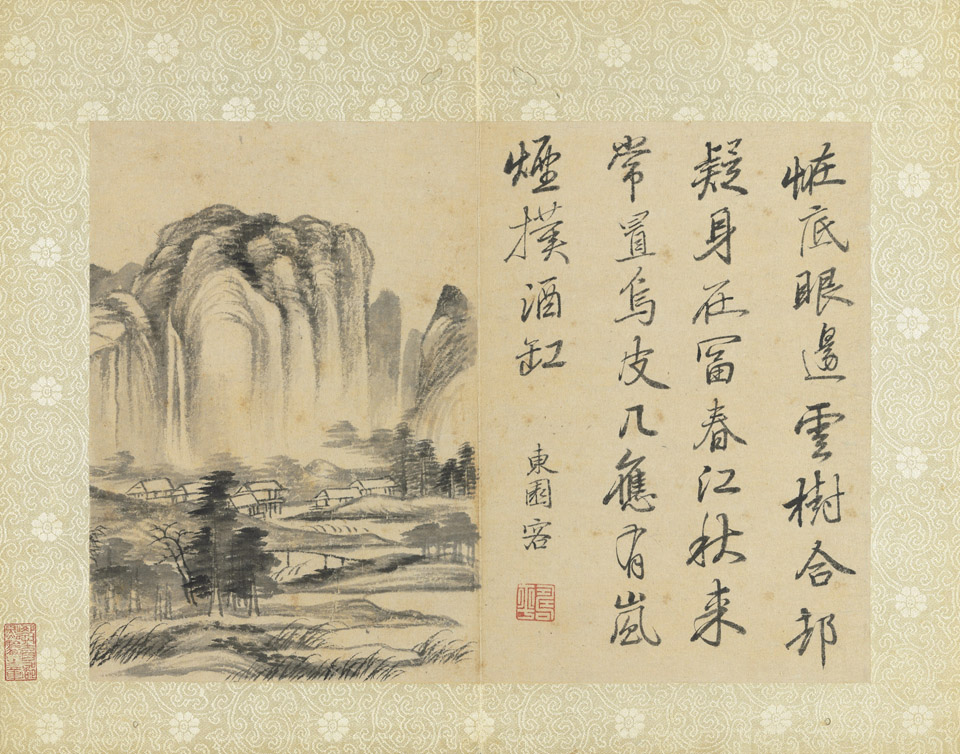 恠底眼邊雲樹合卻
疑身在富春江秋来
常置烏皮几應有嵐
煙撲酒缸
東園客